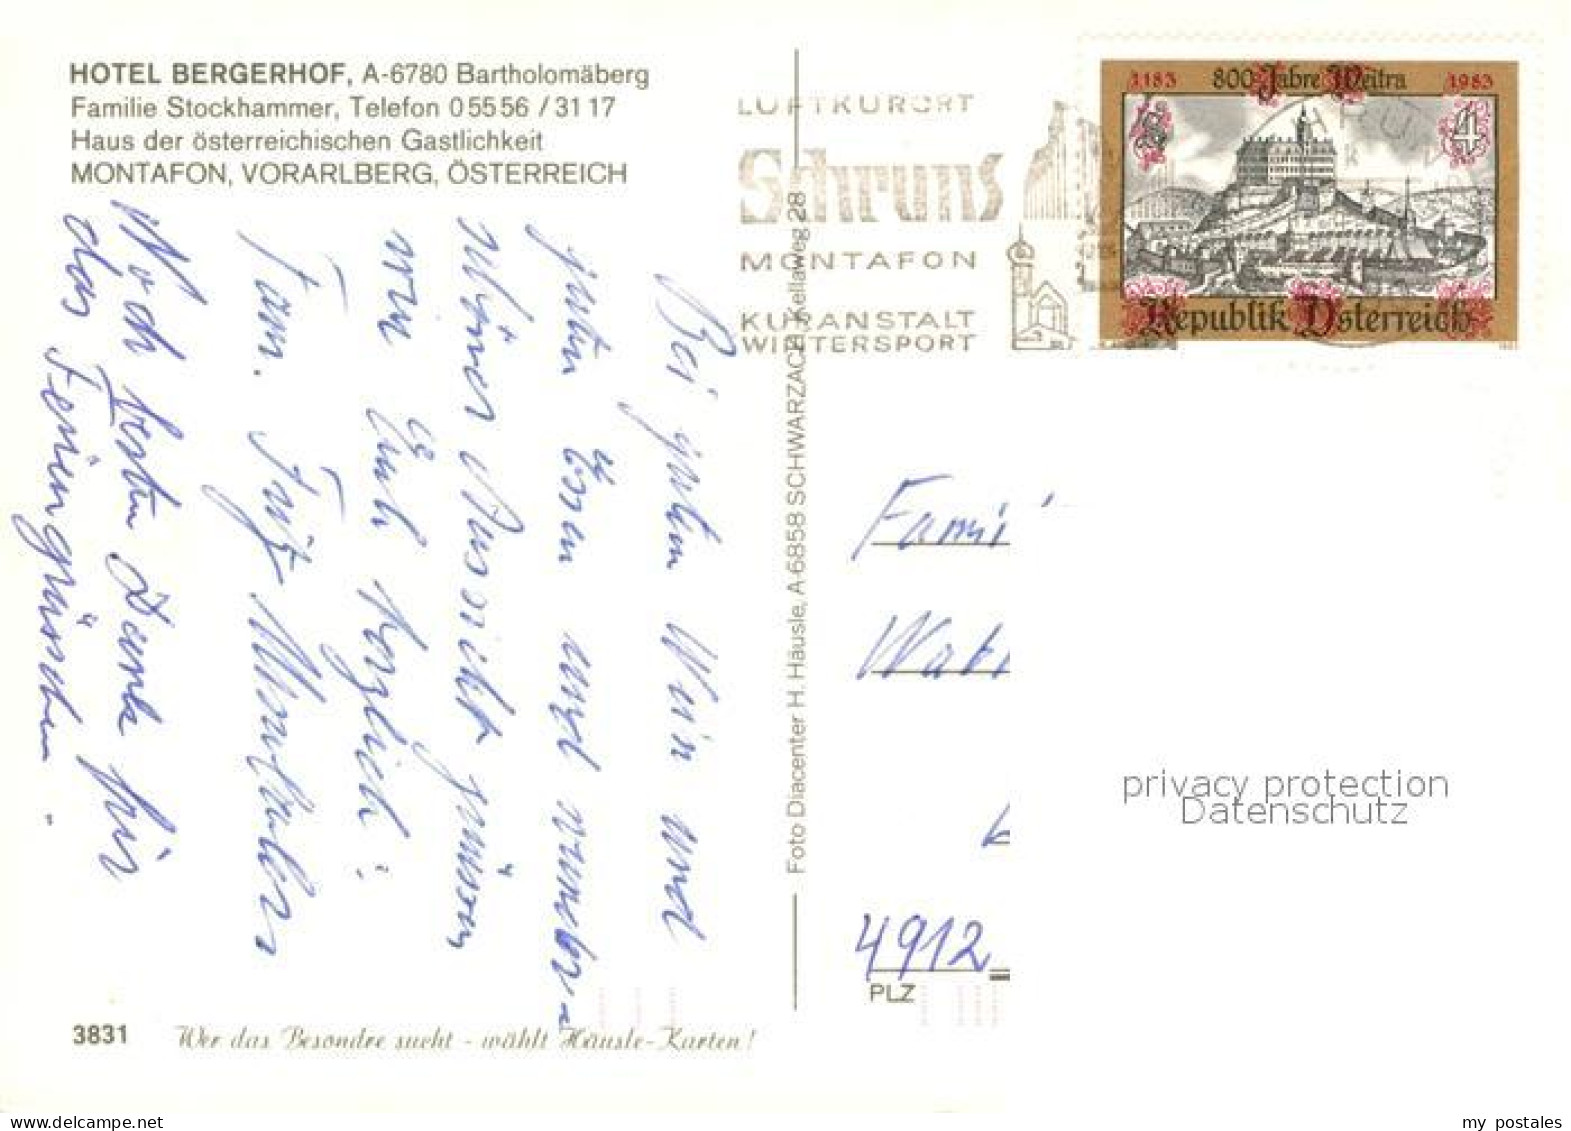 HOTEL BERGERHOF, A-6780 Bartholomäberg
Familie Stockhammer, Telefon 0 55 56 / 31 17
Haus der österreichischen Gastlichkeit
MONTAFON, VORARLBERG, ÖSTERREICH
LUFTKURORT
Schruns
MONTAFON
KURANSTALT
WINTERSPORT
1183 800 Jahre Weitra 1983
S 4
Republik Österreich
Bei guten Wein und
guten Essen und wunder-
schöner Aussicht grüssen
wir Euch herzlich!
Fam. Fritz
Noch besten Dank für
das Feriengrüsschen.
Foto Diacenter H. Häusle, A-6858 SCHWARZACH, Kellaweg 28
Fami
4912
PLZ
privacy protection
Datenschutz
3831
Wer das Besondre sucht - wählt Häusle-Karten!
my postales